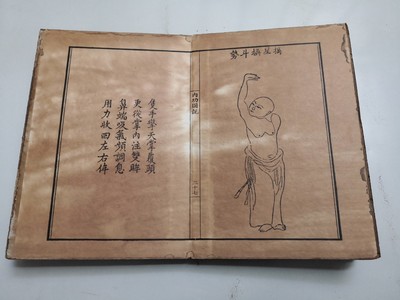 摘星換斗勢
內功圖說
隻手擎天掌覆頭
更從掌內注雙眸
鼻端吸氣頻調息
用力收回左右侔